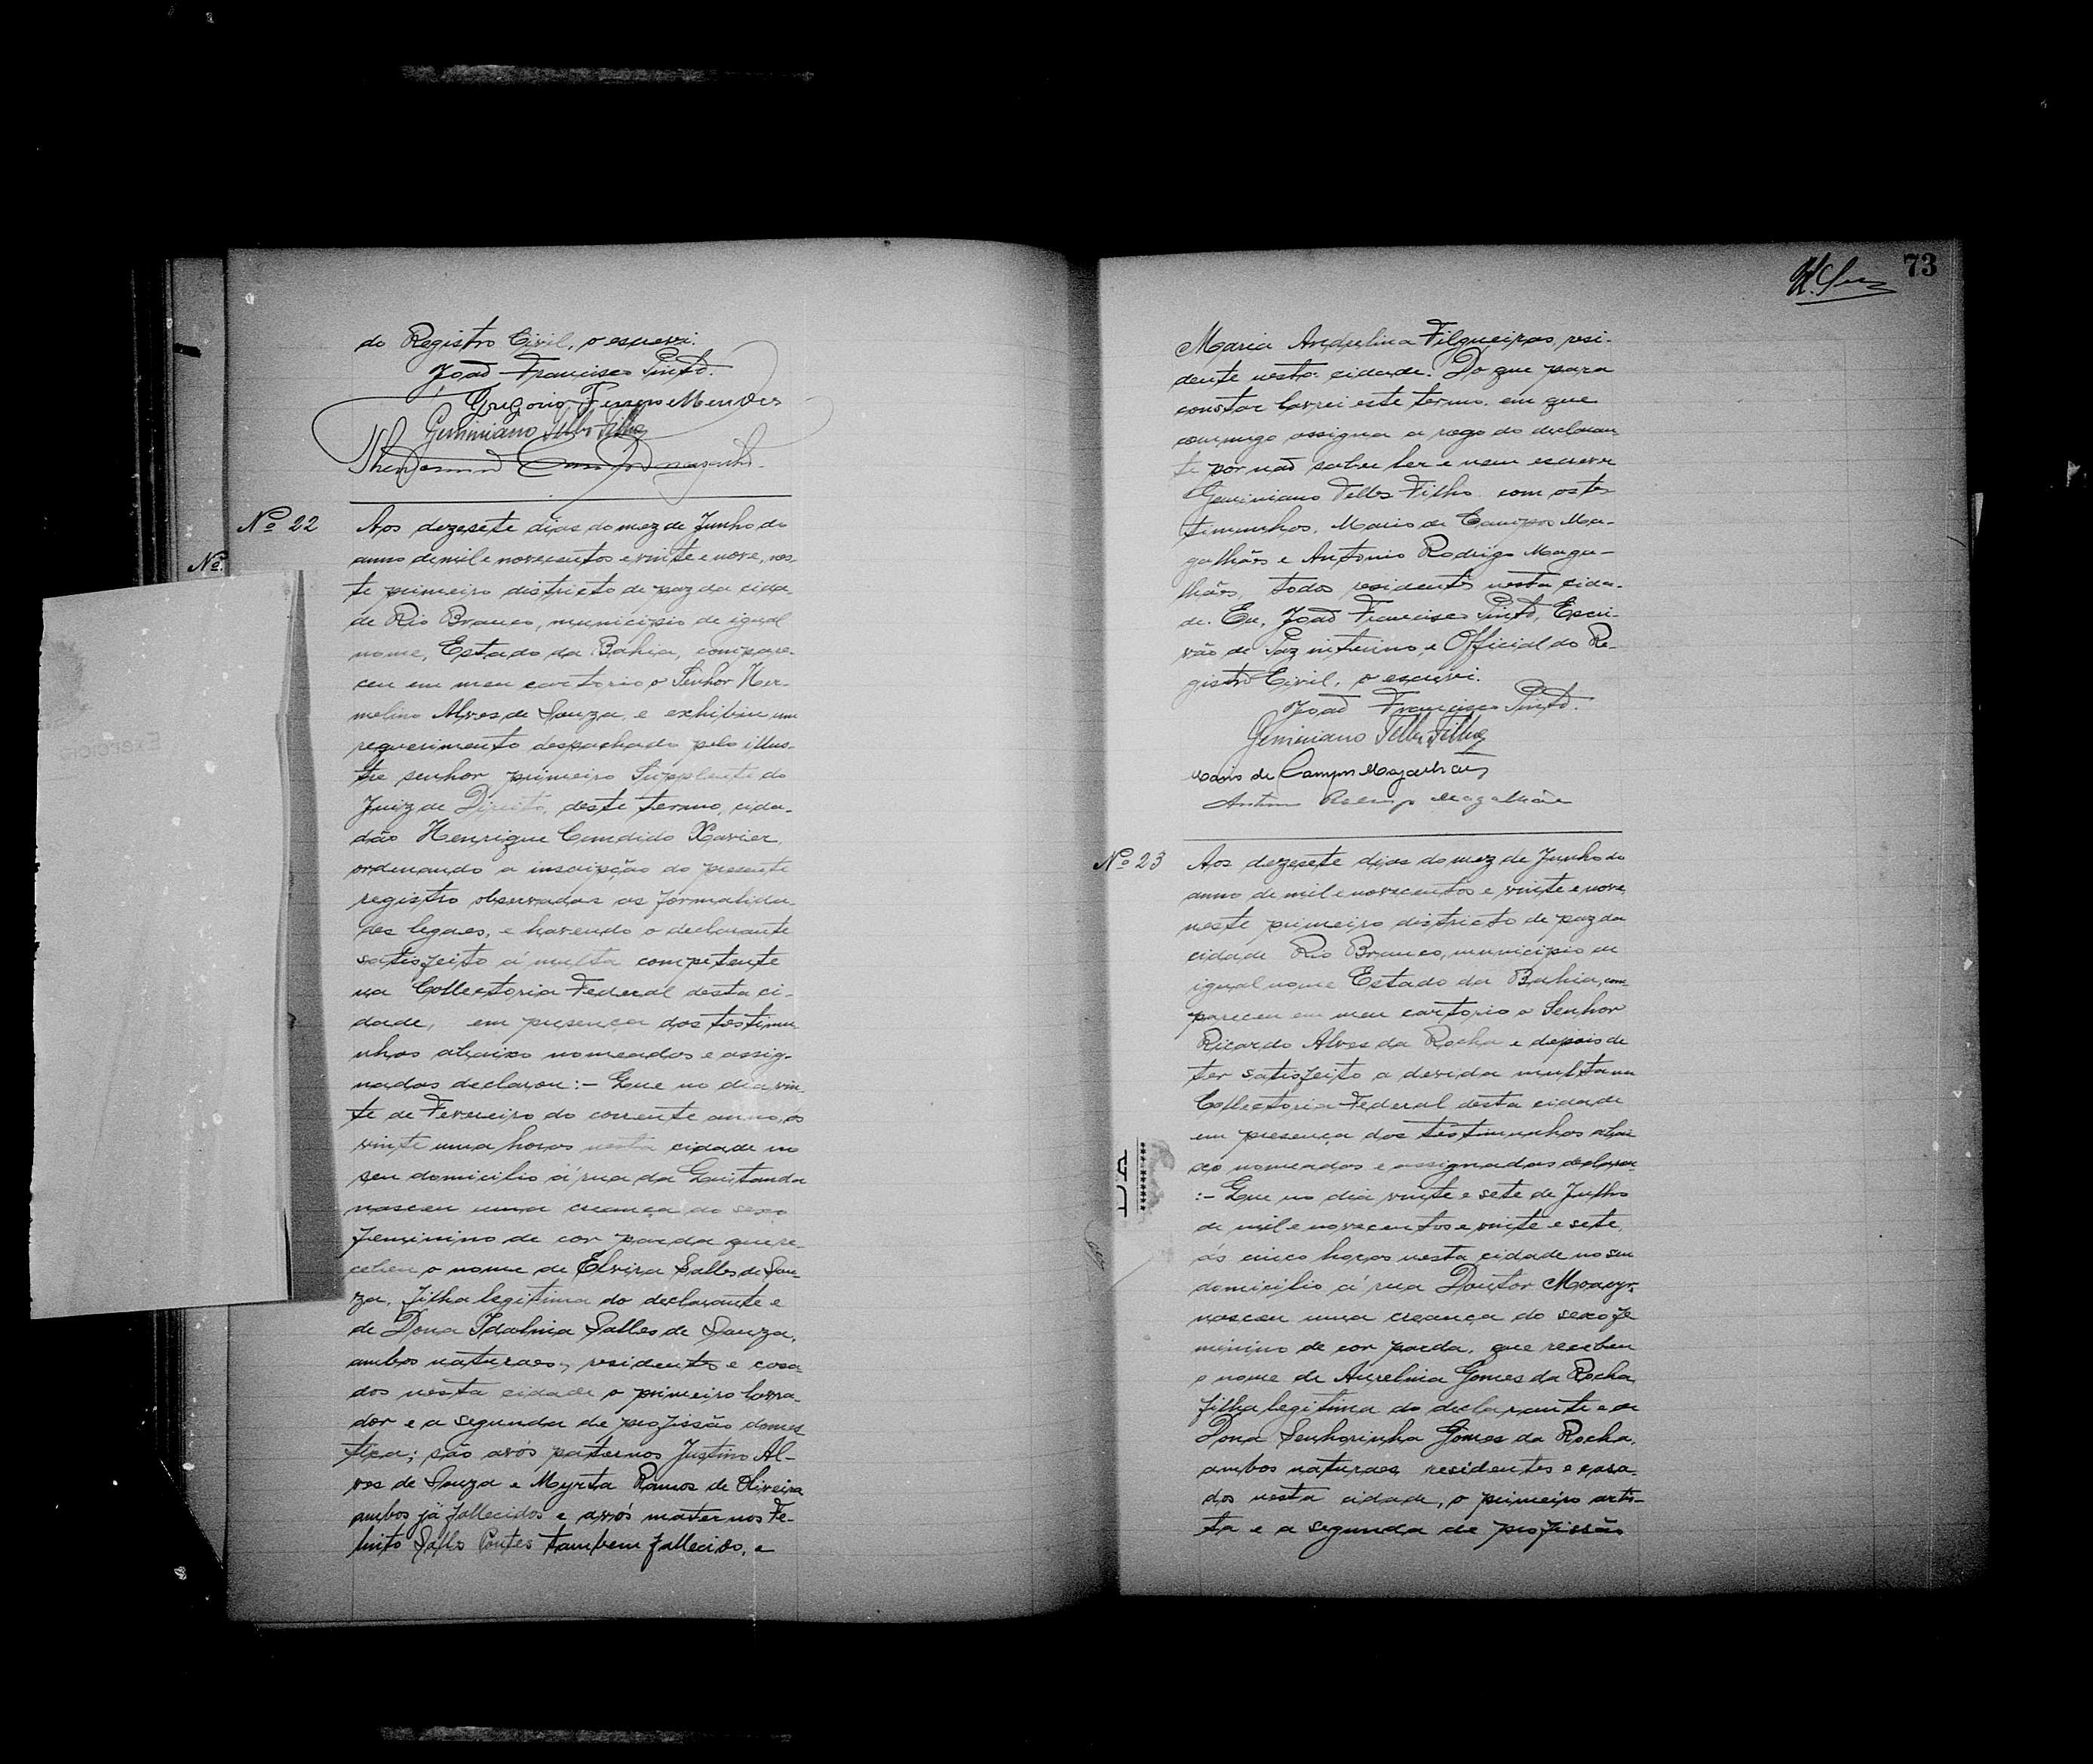 do Registro Civil, o escrevi.
João Francisco Pinto.
Gregorio Ferrero Mendes
Geminiano Telles Filho
Nº 22
Aos dezesete dias do mez de Junho do
anno de mil e novecentos e vinte e nove, nes-
te primeiro districto de paz da cida
de Rio Branco, municipio de igual
nome, Estado da Bahia, compare-
ceu em meu cartorio o Senhor Her-
melino Alves de Souza, e exhibiu um
requerimento despachado pelo illus-
tre senhor primeiro Supplente do
Juiz de Direito, deste termo, cida-
dão Henrique Candido Xavier,
ordenando a inscripção do presente
registro observadas as formalida-
des legaes, e havendo o declarante
satisfeito á multa competente
na Collectoria Federal desta ci-
dade, em presença das testimu
nhas abaixo nomeadas e assig-
nadas declarou:- Que no dia vin-
te de Fevereiro do corrente anno, as
vinte uma horas nesta cidade no
seu domicilio á rua da Quitanda
nasceu uma creança do sexo
feminino de cor parda que re-
cebeu o nome de Elvira Salles de Sou-
za, filha legitima do declarante e
de Dona Idalnia Salles de Souza,
ambos naturaes, residentes e casa
dos nesta cidade o primeiro lavra-
dor e a segunda de profissão domes
tica; são avós paternos Justino Al-
ves de Souza e Myrta Ramos de Oliveira
ambos já fallecidos e avós maternos Fe-
linto Salles Pontes tambem fallecido, e
Nº
73
Maria Andrelina Filgueiras, resi-
dente nesta cidade. Do que para
constar lavrei este termo em que
commigo assigna a rogo do declaran-
te por não saber ler e nem escrever
Geminiano Telles Filho com as tes
timunhas, Mario de Campos Ma-
galhães e Antonio Rodrigo Maga-
lhães, todos residentes nesta cida-
de. Eu, João Francisco Pinto, Escri-
vão de Paz interino, e Official do Re-
gistro Civil, o escrevi.
João Francisco Pinto.
Geminiano Telles Filho
Mario de Campos Magalhães
Antonio Rodrigo Magalhães
Nº 23
Aos dezesete dias do mez de Junho do
anno de mil e novecentos e vinte e nove
neste primeiro districto de paz da
cidade Rio Branco, municipio de
igual nome Estado da Bahia, com
pareceu em meu cartorio o Senhor
Ricardo Alves da Rocha e depois de
ter satisfeito a devida multa na
Collectoria Federal desta cidade
em presença das testimunhas abai
xo nomeadas e assignadas declarou
:- Que no dia vinte e sete de Julho
de mil e novecentos e vinte e sete,
ás cinco horas nesta cidade no seu
domicilio á rua Doutor Moacyr,
nasceu uma creança do sexo fe
minino de cor parda, que recebeu
o nome de Aurelina Gomes da Rocha
filha legitima do declarante e de
Dona Senhorinha Gomes da Rocha,
ambos naturaes residentes e casa-
dos nesta cidade, o primeiro artis-
ta e a segunda de profissão